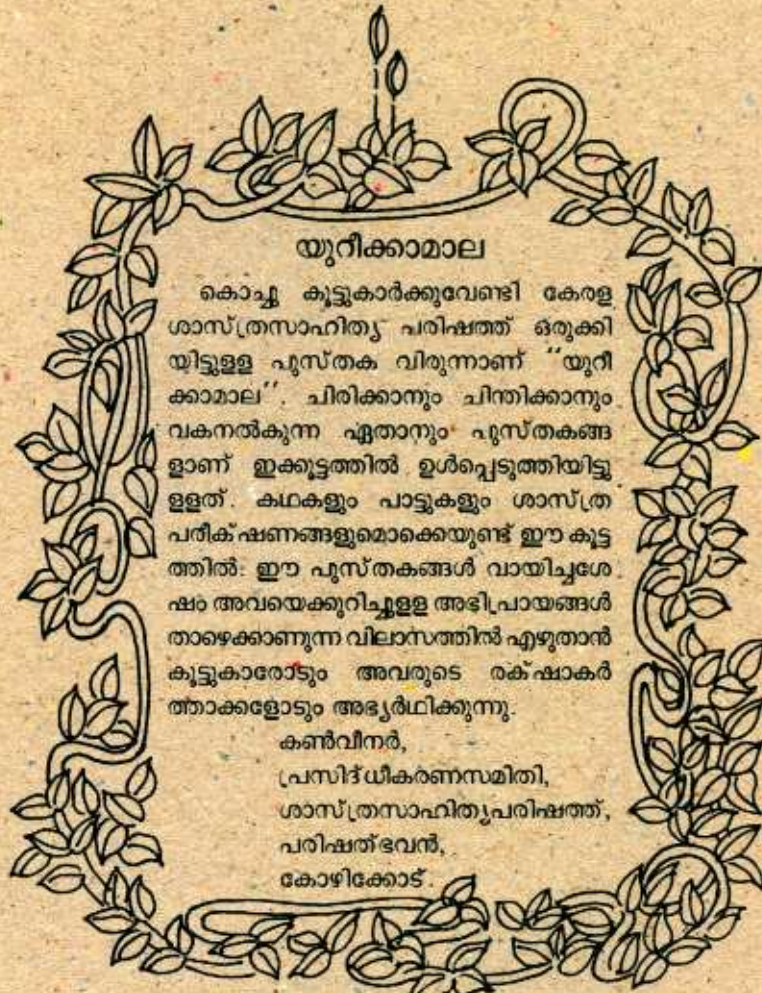 യുറീക്കാമാല
കൊച്ചു കൂട്ടുകാർക്കുവേണ്ടി കേരള
ശാസ്ത്രസാഹിത്യ പരിഷത്ത് ഒരുക്കി
യിട്ടുളള പുസ്തക വിരുന്നാണ് ‘‘യുറീ
ക്കാമാല’’. ചിരിക്കാനും ചിന്തിക്കാനും
വകനൽകുന്ന ഏതാനും പുസ്തകങ്ങ
ളാണ് ഇക്കൂട്ടത്തിൽ ഉൾപ്പെടുത്തിയിട്ടു
ളളത്. കഥകളും പാട്ടുകളും ശാസ്ത്ര
പരീക്ഷണങ്ങളുമൊക്കെയുണ്ട് ഈ കൂട്ട
ത്തിൽ. ഈ പുസ്തകങ്ങൾ വായിച്ചശേ
ഷം അവയെക്കുറിച്ചുളള അഭിപ്രായങ്ങൾ
താഴെക്കാണുന്ന വിലാസത്തിൽ എഴുതാൻ
കൂട്ടുകാരോടും അവരുടെ രക്ഷാകർ
ത്താക്കളോടും അഭ്യർഥിക്കുന്നു.
കൺവീനർ,
പ്രസിദ്ധീകരണസമിതി,
ശാസ്ത്രസാഹിത്യപരിഷത്ത്,
പരിഷത്ഭവൻ,
കോഴിക്കോട്.